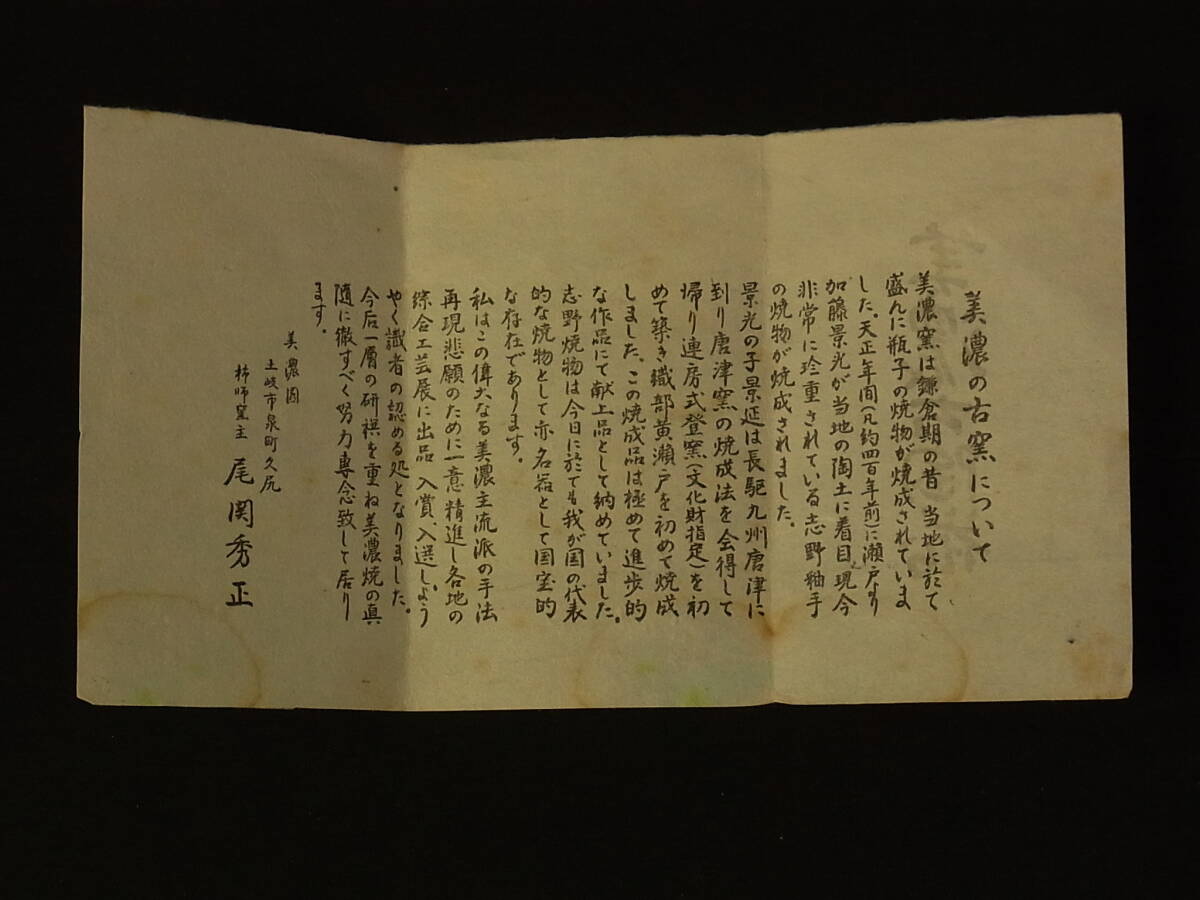 美濃の古窯について
美濃窯は鎌倉期の昔 当地に於て
盛んに瓶子の焼物が焼成されていま
した。天正年間(凡約四百年前)に瀬戸より
加藤景光が当地の陶土に着目、現今
非常に珍重されている志野釉手
の焼物が焼成されました。
景光の子景延は長駆九州唐津に
到り唐津窯の焼成法を会得して
帰り連房式登窯(文化財指定)を初
めて築き織部黄瀬戸を初めて焼成
しました、この焼成品は極めて進歩的
な作品にて献上品として納めていました。
志野焼物は今日に於ても我が国の代表
的な焼物として亦名器として国宝的
な存在であります。
私はこの偉大なる美濃主流派の手法
再現悲願のために一意精進し各地の
綜合工芸展に出品 入賞、入選し、よう
やく識者の認める処となりました。
今后一層の研禩を重ね美濃焼の真
随に徹すべく努力専念致して居り
ます。
美濃国
土岐市泉町久尻
柿師窯主 尾関秀正